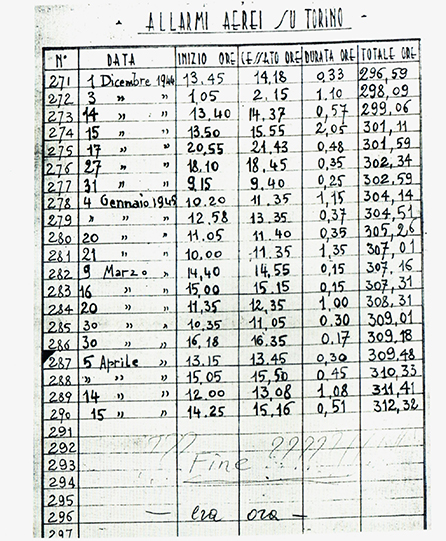 - ALLARMI AEREI SU TORINO -
N° DATA INIZIO ORE CESSATO ORE DURATA ORE TOTALE ORE
271 1 Dicembre 1944 13.45 14.18 0,33 296,59
272 3 " " 1,05 2.15 1.10 298,09
273 14 " " 13.40 14.37 0,57 299.06
274 15 " " 13.50 15.55 2,05 301,11
275 17 " " 20,55 21,43 0,48 301,59
276 27 " " 18.10 18,45 0,35 302,34
277 31 " " 9,15 9.40 0,25 302,59
278 4 Gennaio 1945 10.20 11.35 1,15 304,14
279 " " " 12.58 13.35 0,37 304,51
280 20 " " 11.05 11.40 0,35 305,26
281 21 " " 10.00 11.35 1,35 307,01
282 9 Marzo " 14,40 14,55 0,15 307,16
283 16 " " 15,00 15.15 0,15 307,31
284 20 " " 11,35 12,35 1,00 308,31
285 30 " " 10,35 11,05 0.30 309,01
286 30 " " 16,18 16.35 0.17 309.18
287 5 Aprile " 13.15 13.45 0,30 309,48
288 " " " 15,05 15,50 0,45 310,33
289 14 " " 12.00 13,08 1,08 311,41
290 15 " " 14.25 15,16 0,51 312,32
291
292 ??? ????
293 Fine
294
295
296 — era ora —
297